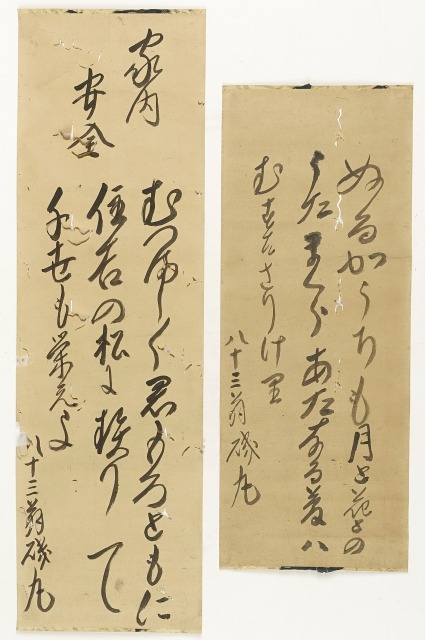 ぬるかうちも月と花との
うたまくらあたなる夢ハ
むすはさりけり
八十三翁磯丸
家内
安全
むつましく君もろともに
住吉の松に契りて
千世も栄えよ
八十三翁磯丸